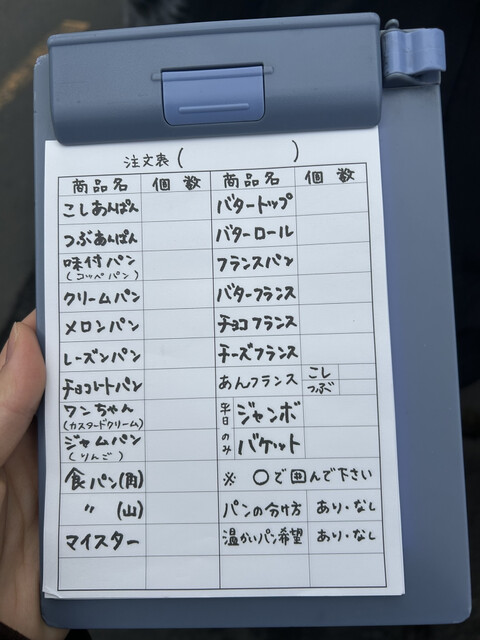 注文表（　　　　　）
商品名　個数　商品名　個数
こしあんぱん　バタートップ
つぶあんぱん　バターロール
味付パン　フランスパン
(コッペパン)
クリームパン　バターフランス
メロンパン　チョコフランス
レーズンパン　チーズフランス
チョコレートパン　あんフランス　こし
つぶ
ワンちゃん　平日　ジャンボ
(カスタードクリーム)
ジャムパン　のみ　バケット
(りんご)
食パン(角)　※　○で囲んで下さい
〃　(山)　パンの分け方　あり・なし
マイスター　温かいパン希望　あり・なし